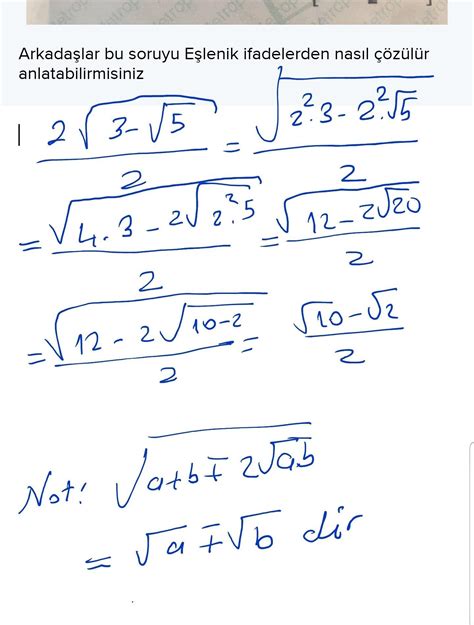 Arkadaşlar bu soruyu Eşlenik ifadelerden nasıl çözülür
anlatabilirmisiniz
2√(3-√5) / 2 = √(2².3-2².√5) / 2
= √(4.3-2√(2².5)) / 2 = √(12-2√20) / 2
= √(12-2√(10-2)) / 2 = (√10-√2) / 2
Not: √(a+b∓2√ab)
= √a∓√b dir